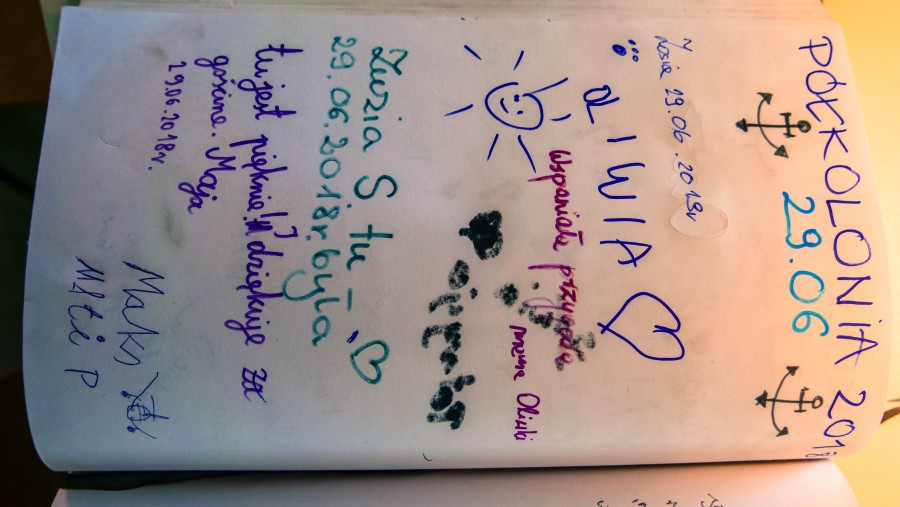 PÓŁKOLONiA 2018
29.06
Zosia 29.06.2018r
OLIWIA
Wspaniała przygoda
mama Oliwki
Zuzia S tu
29.06.2018r. była
tu jest pięknie!!! dziękuje za
gościne. Maja
29.06.2018r.
Maks
Mati P